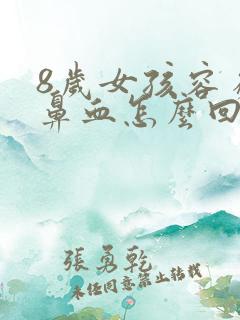 8歲女孩容
鼻血怎麼回
張勇乾
未經同意禁止轉載